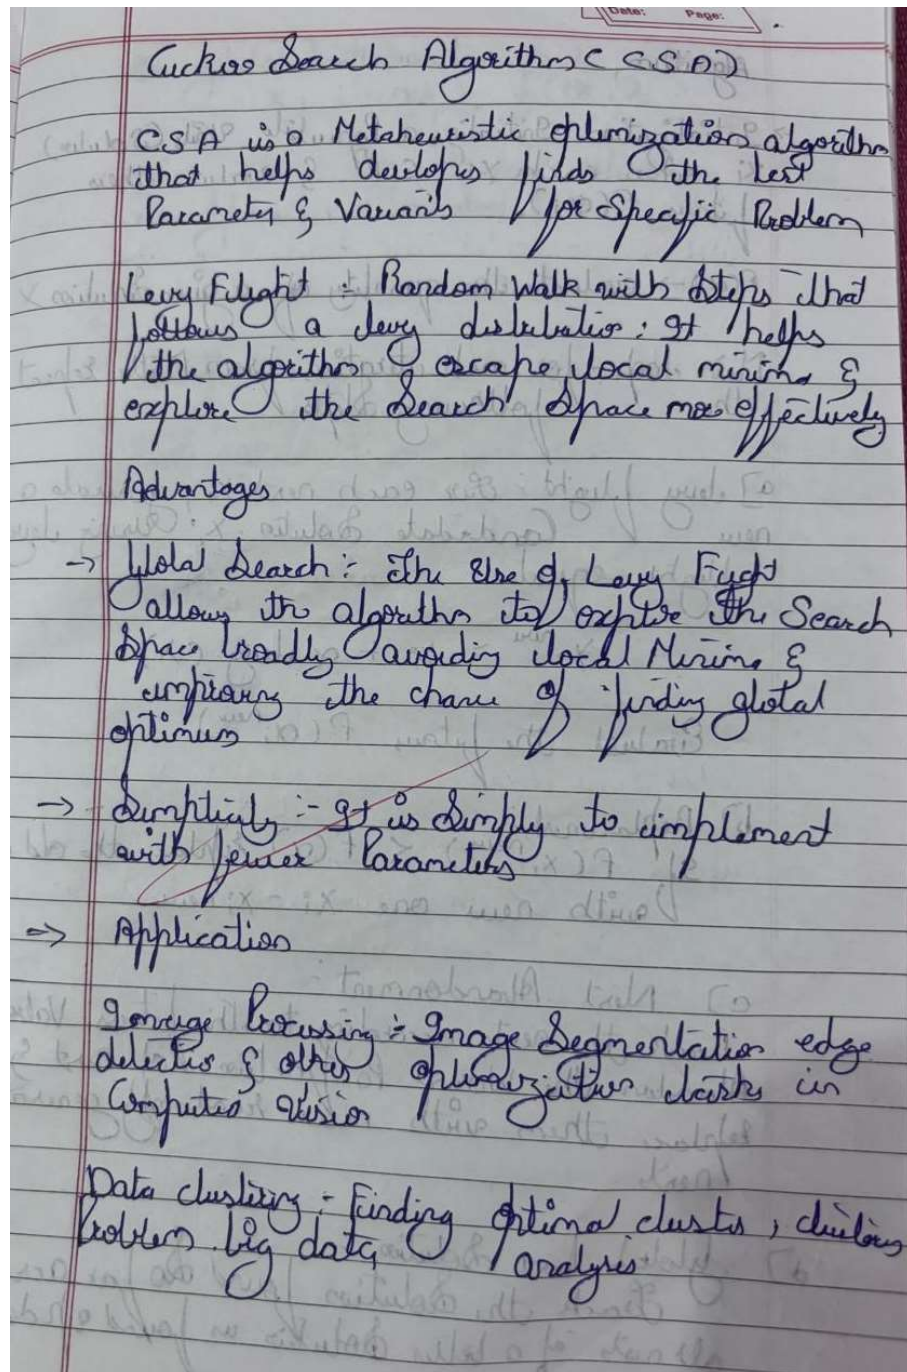 Date: Page:
Cuckoo Search Algorithm (CSA)
CSA is a Metaheuristic optimization algorithm
that helps develops finds the best
Parameters & Variants for Specific Problem
Levy Flight : Random Walk with steps that
follows a levy distribution; It helps
the algorithm escape local minima &
explore the Search Space more effectively
Advantages
→ Global Search :- The Use of Levy Fught
allows the algorithm to explore the Search
Space broadly avoiding local Minima &
improving the chance of finding global
optimum
→ Simplicity :- It is Simply to implement
with fewer Parameters
⇒ Application
Image Processing :- Image Segmentation edge
detection & other optimization tasks in
Computer Vision
Data clustering :- Finding optimal clusters,
Problem big data analysis